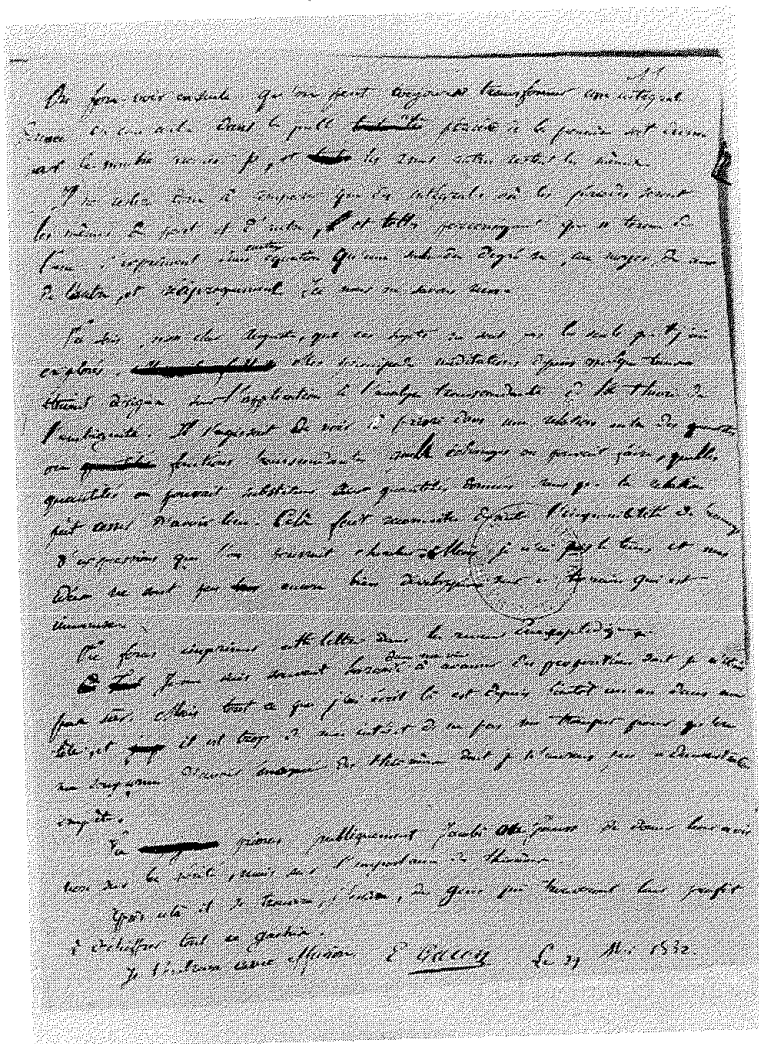 11
On fera voir ensuite qu'on peut toujours transformer une intégrale
donnée en une autre dans laquelle une période de la première soit divisée
par le nombre premier p, et les 2n-1 autres restent les mêmes.
Il ne restera donc à comparer que des intégrales où les périodes seront
les mêmes de part et d'autre, et telles par conséquent que n termes de
l'une s'expriment sans autre équation qu'une seule du degré n, au moyen de ceux
de l'autre, et réciproquement. Ici nous ne savons rien.
Tu sais, mon cher Auguste, que ces sujets ne sont pas les seuls que j'aie
explorés. Mes principales méditations depuis quelque temps
étaient dirigées sur l'application à l'analyse transcendante de la théorie de
l'ambiguité. Il s'agissait de voir à priori dans une relation entre des quantités
ou fonctions transcendantes quels échanges on pouvait faire, quelles
quantités on pouvait substituer aux quantités données sans que la relation
put cesser d'avoir lieu. Cela fait reconnaitre l'impossibilité de beaucoup
d'expressions que l'on pourrait chercher. Mais je n'ai pas le tems et mes
idées ne sont pas encore bien développées sur ce terrain qui est
immense.
Tu feras imprimer cette lettre dans la revue encyclopédique.
Je me suis souvent hasardé dans ma vie à avancer des propositions dont je n'étais
pas sûr. Mais tout ce que j'ai écrit là est depuis bientôt un an dans ma
tête, et il est trop de mon intérêt de ne pas me tromper pour qu'on
me soupçonne d'avoir énoncé des théorèmes dont je n'aurais pas la démonstration
complète.
Tu prieras publiquement Jacobi ou Gauss de donner leur avis
non sur la vérité, mais sur l'importance des théorèmes.
Après cela il se trouvera, j'espère, des gens qui trouveront leur profit
à déchiffrer tout ce gachis.
Je t'embrasse avec effusion. E Galois Le 29 Mai 1832.